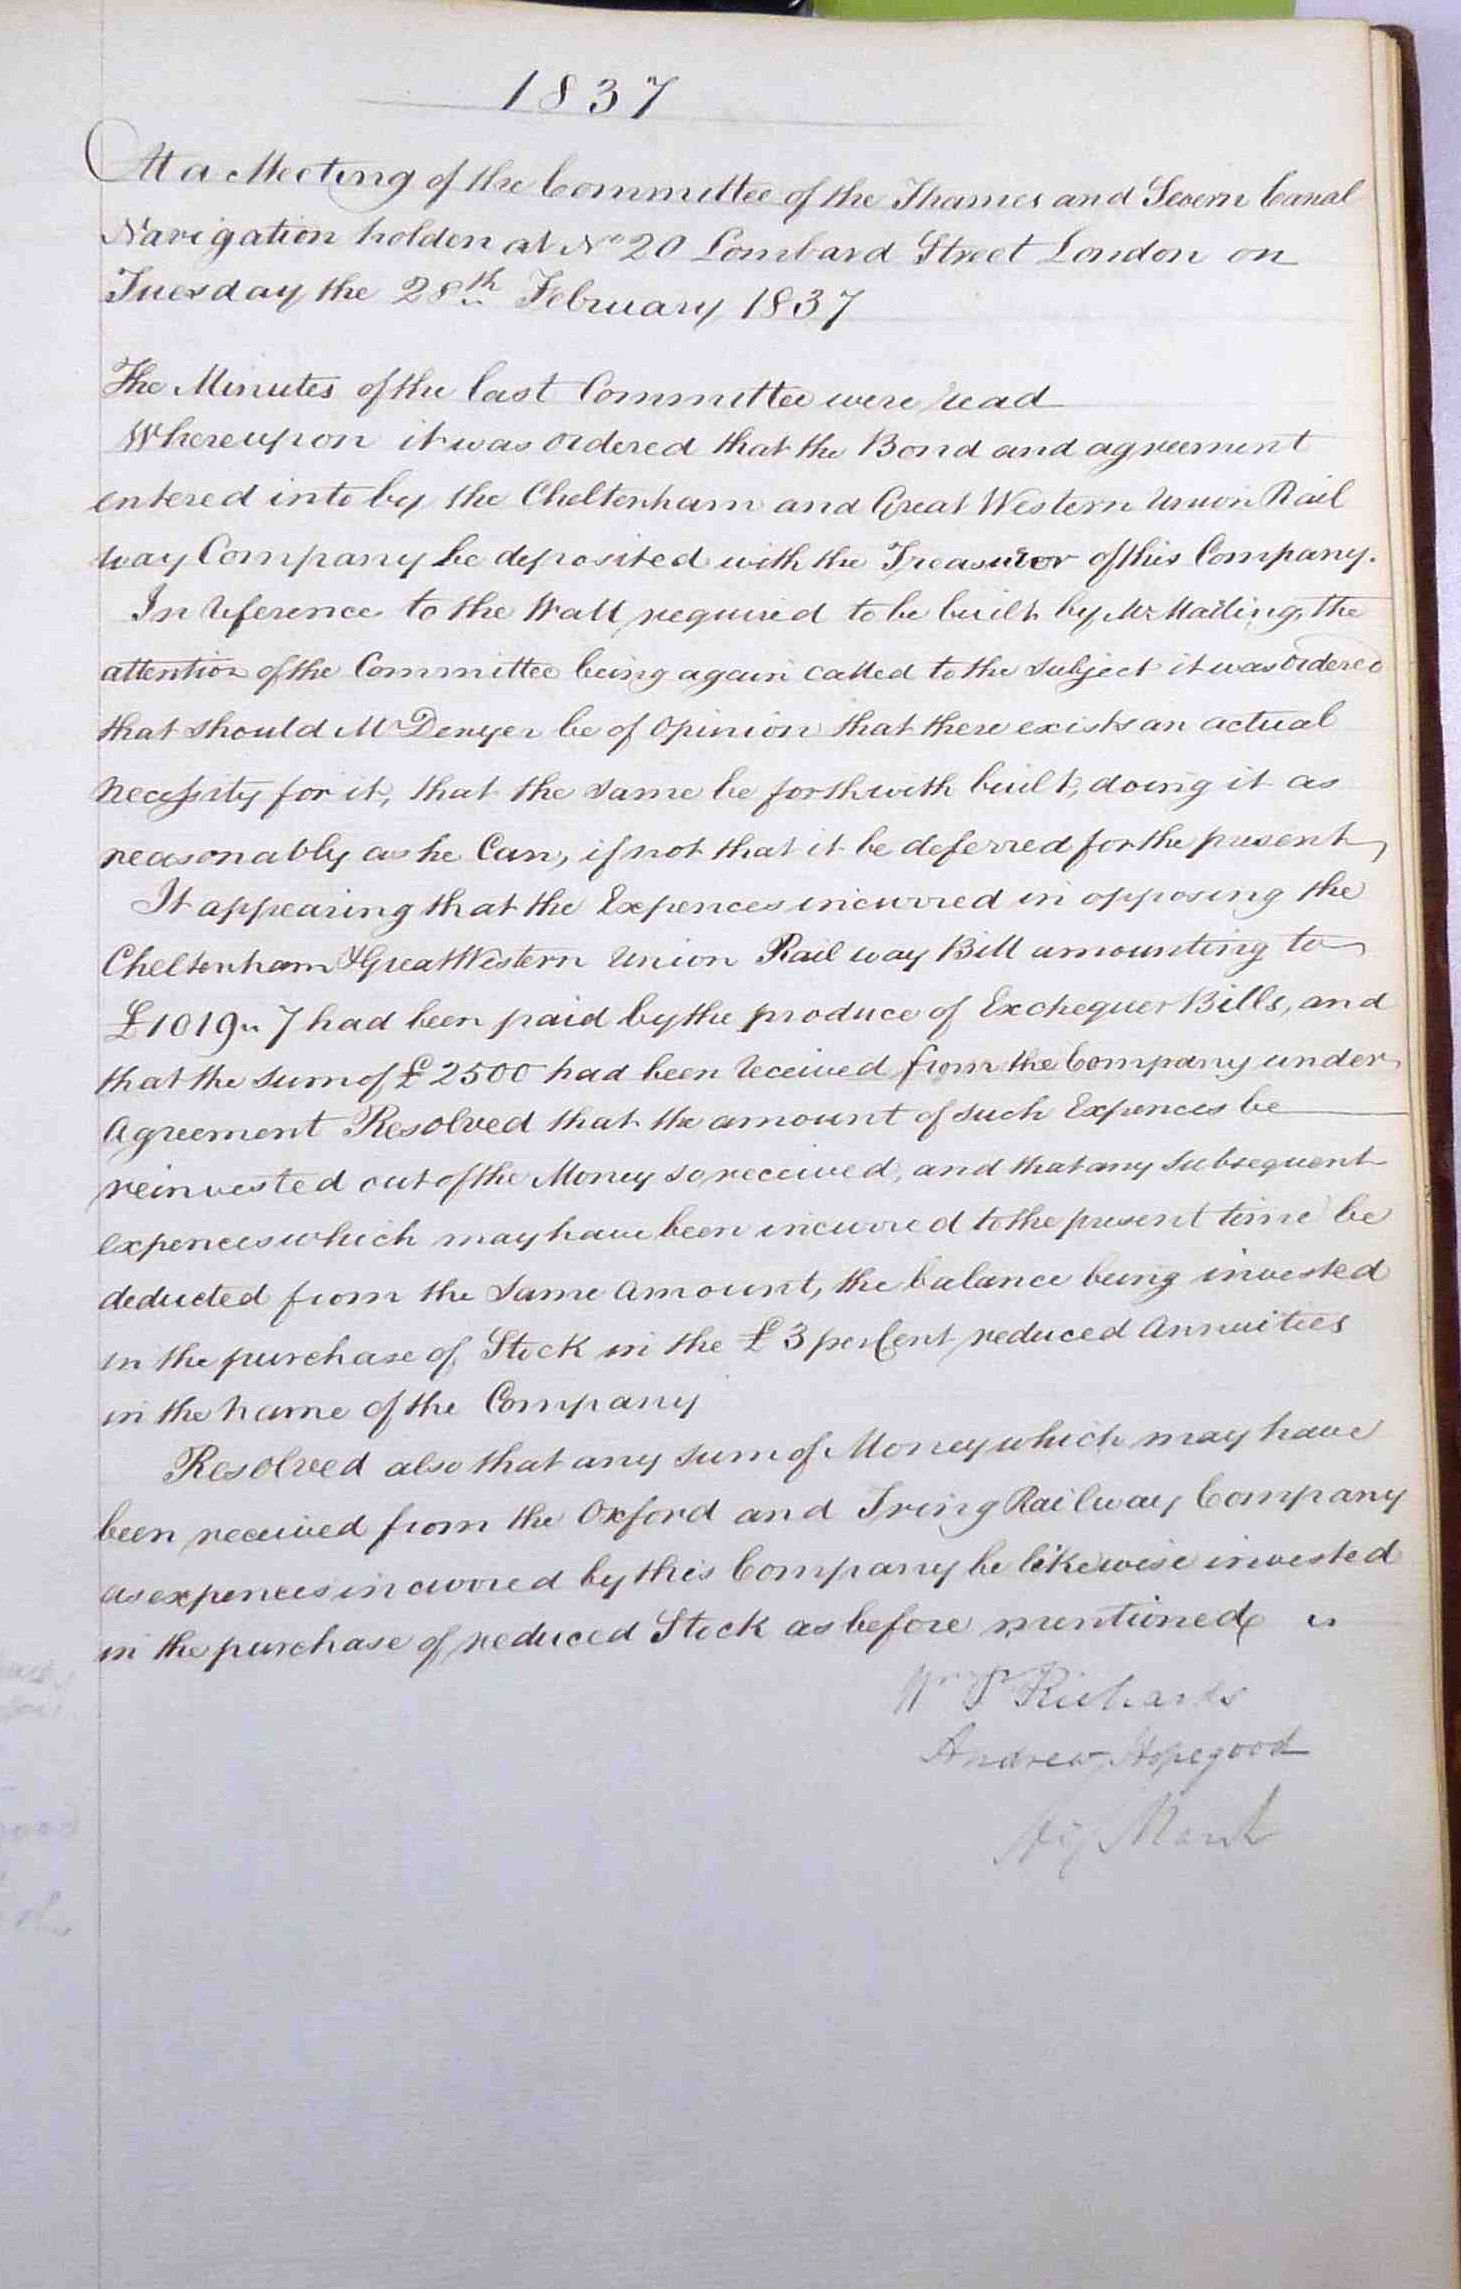 1837
At a Meeting of the Committee of the Thames and Severn Canal
Navigation holden at No 20 Lombard Street London on
Tuesday the 28th February 1837
The Minutes of the last Committee were read
Whereupon it was ordered that the Bond and agreement
entered into by the Cheltenham and Great Western Union Rail
way Company be deposited with the Treasurer of this Company.
In reference to the Wall required to be built by Mr Mailing, the
attention of the Committee being again called to the subject it was ordered
that should Mr Denyer be of opinion that there exists an actual
necessity for it, that the same be forthwith built, doing it as
reasonably as he Can, if not that it be deferred for the present
It appearing that the Expences incurred in opposing the
Cheltenham & Great Western Union Railway Bill amounting to
£1019 " 7 had been paid by the produce of Exchequer Bills, and
that the sum of £2500 had been received from the Company under
Agreement Resolved that the amount of such Expences be
reinvested out of the Money so received, and that any subsequent
expences which may have been incurred to the present time be
deducted from the same amount, the balance being invested
in the purchase of Stock in the £3 per Cent reduced Annuities
in the name of the Company
Resolved also that any sum of Money which may have
been received from the Oxford and Tring Railway Company
as expences incurred by this Company be likewise invested
in the purchase of reduced Stock as before mentioned "
Wm P Richards
Andrew Hopegood